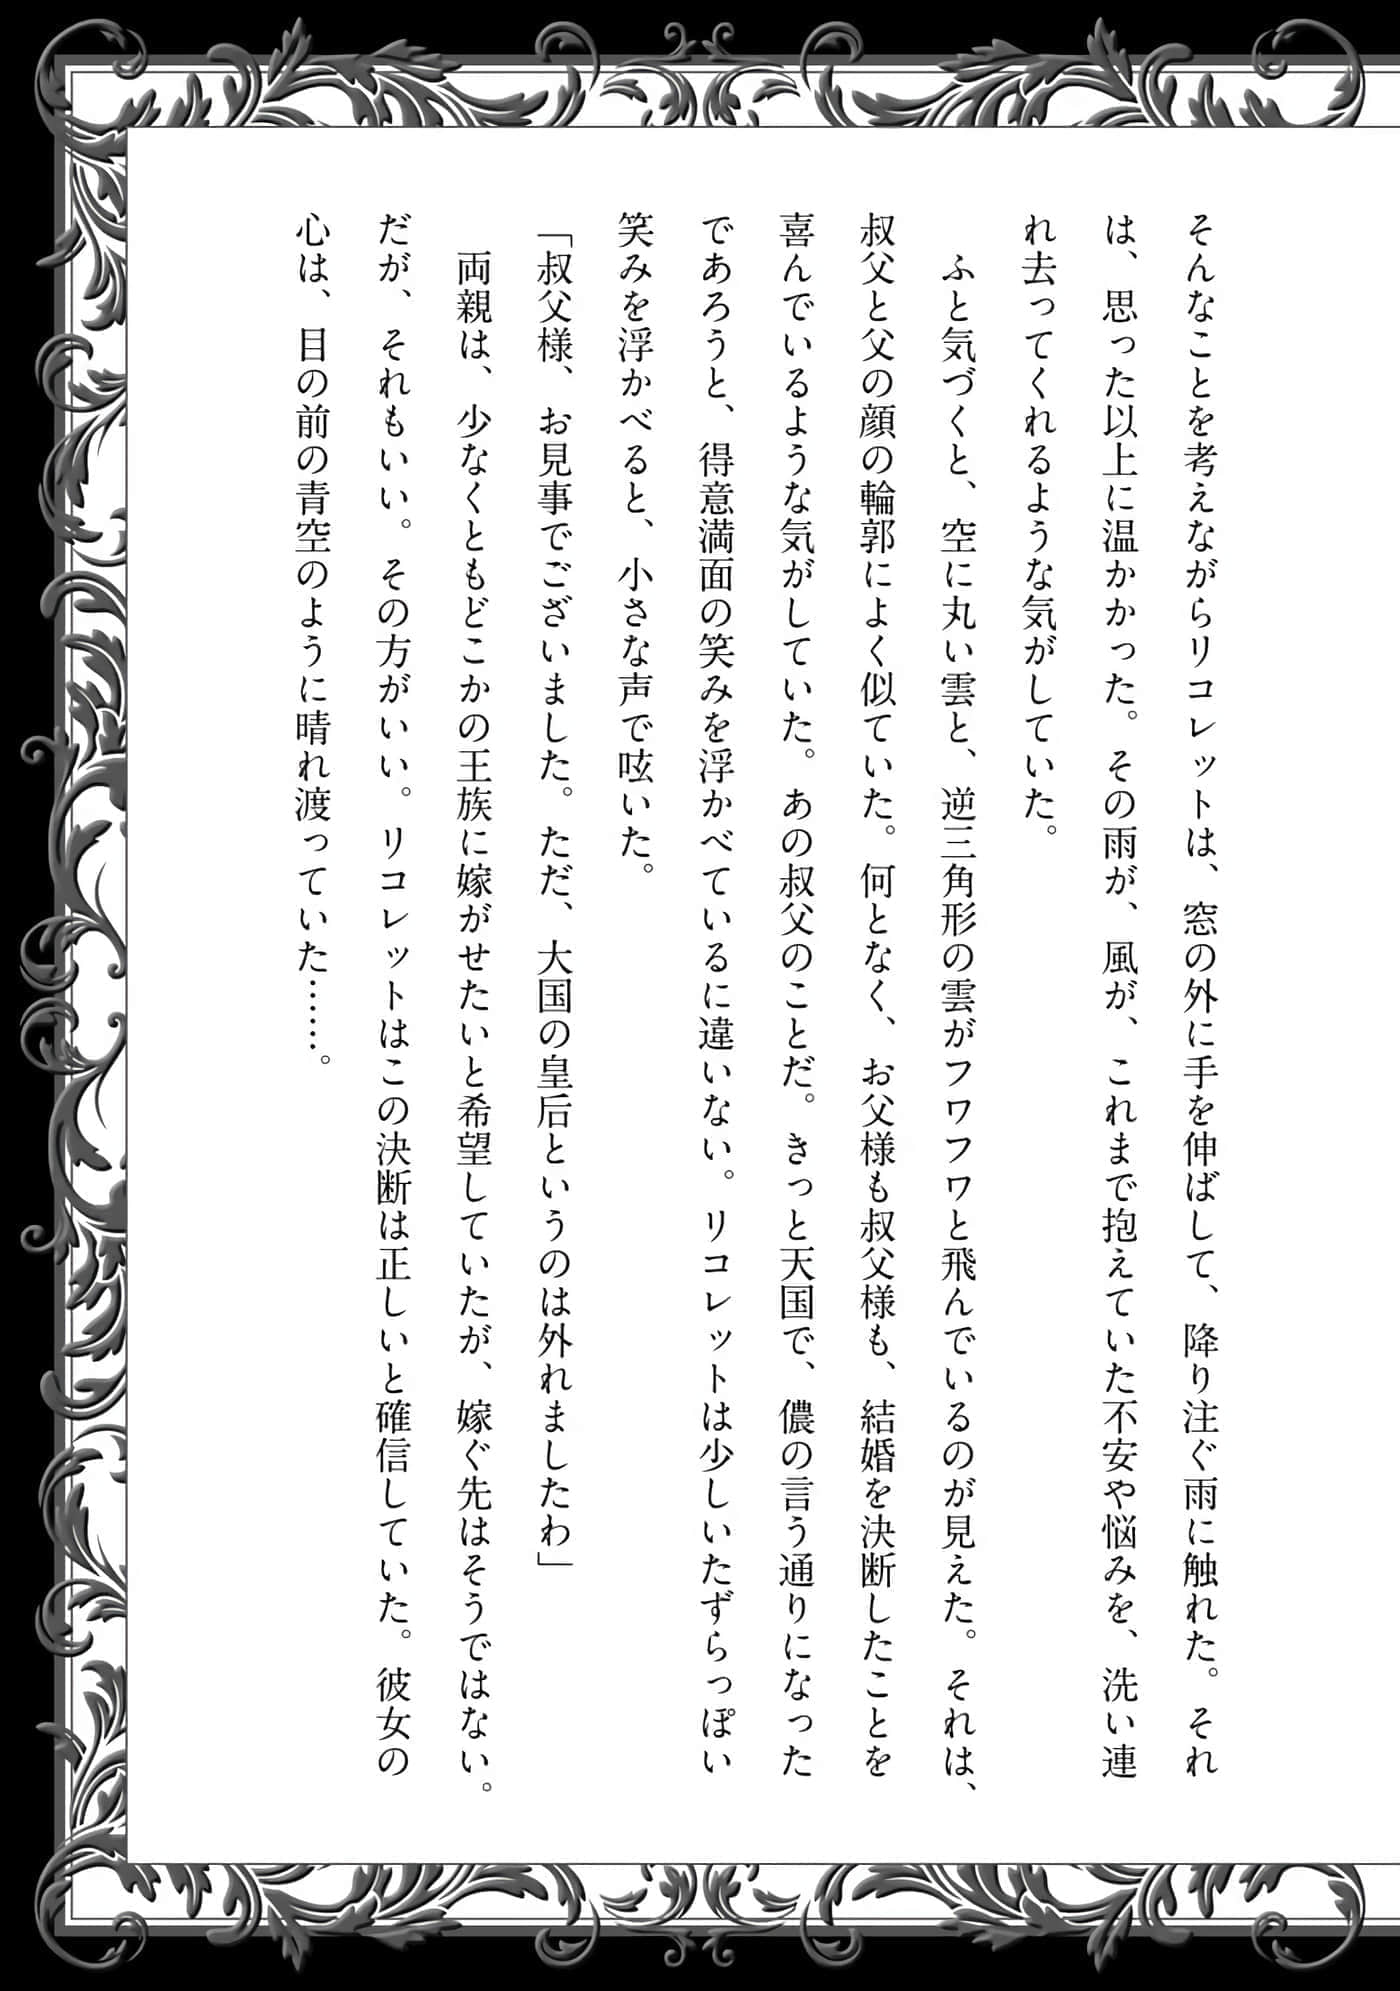 そんなことを考えながらリコレットは、窓の外に手を伸ばして、降り注ぐ雨に触れた。それ
は、思った以上に温かかった。その雨が、風が、これまで抱えていた不安や悩みを、洗い連
れ去ってくれるような気がしていた。
　ふと気づくと、空に丸い雲と、逆三角形の雲がフワフワと飛んでいるのが見えた。それは、
叔父と父の顔の輪郭によく似ていた。何となく、お父様も叔父様も、結婚を決断したことを
喜んでいるような気がしていた。あの叔父のことだ。きっと天国で、儂の言う通りになった
であろうと、得意満面の笑みを浮かべているに違いない。リコレットは少しいたずらっぽい
笑みを浮かべると、小さな声で呟いた。
「叔父様、お見事でございました。ただ、大国の皇后というのは外れましたわ」
　両親は、少なくともどこかの王族に嫁がせたいと希望していたが、嫁ぐ先はそうではない。
だが、それもいい。その方がいい。リコレットはこの決断は正しいと確信していた。彼女の
心は、目の前の青空のように晴れ渡っていた……。